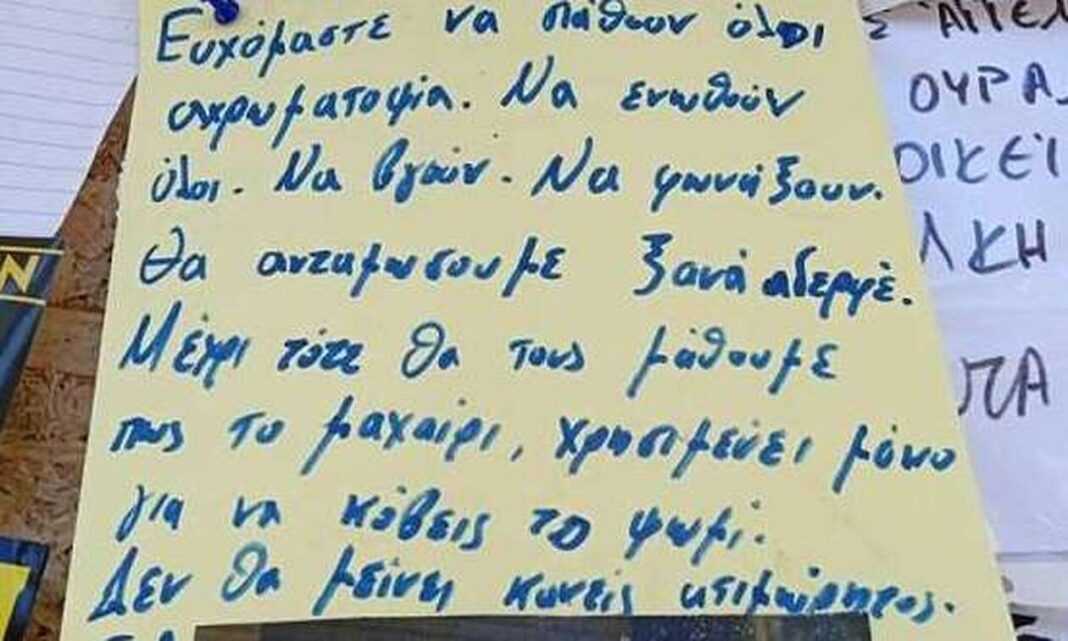 Ευχόμαστε να πάθουν όλοι
αχρωματοψία. Να ενωθούν
όλοι. Να βγούν. Να φωνάξουν.
Θα ανταμώσουμε ξανά αδερφέ.
Μέχρι τότε θα τους μάθουμε
πως το μαχαίρι, χρησιμεύει μόνο
για να κόβεις το ψωμί.
Δεν θα μείνει κανείς ατιμώρητος.
ΑΓΓΕΛ
ΟΥΡΑ
ΟΙΚΕΙ
ΛΚΗ
ΠΑ
Ν